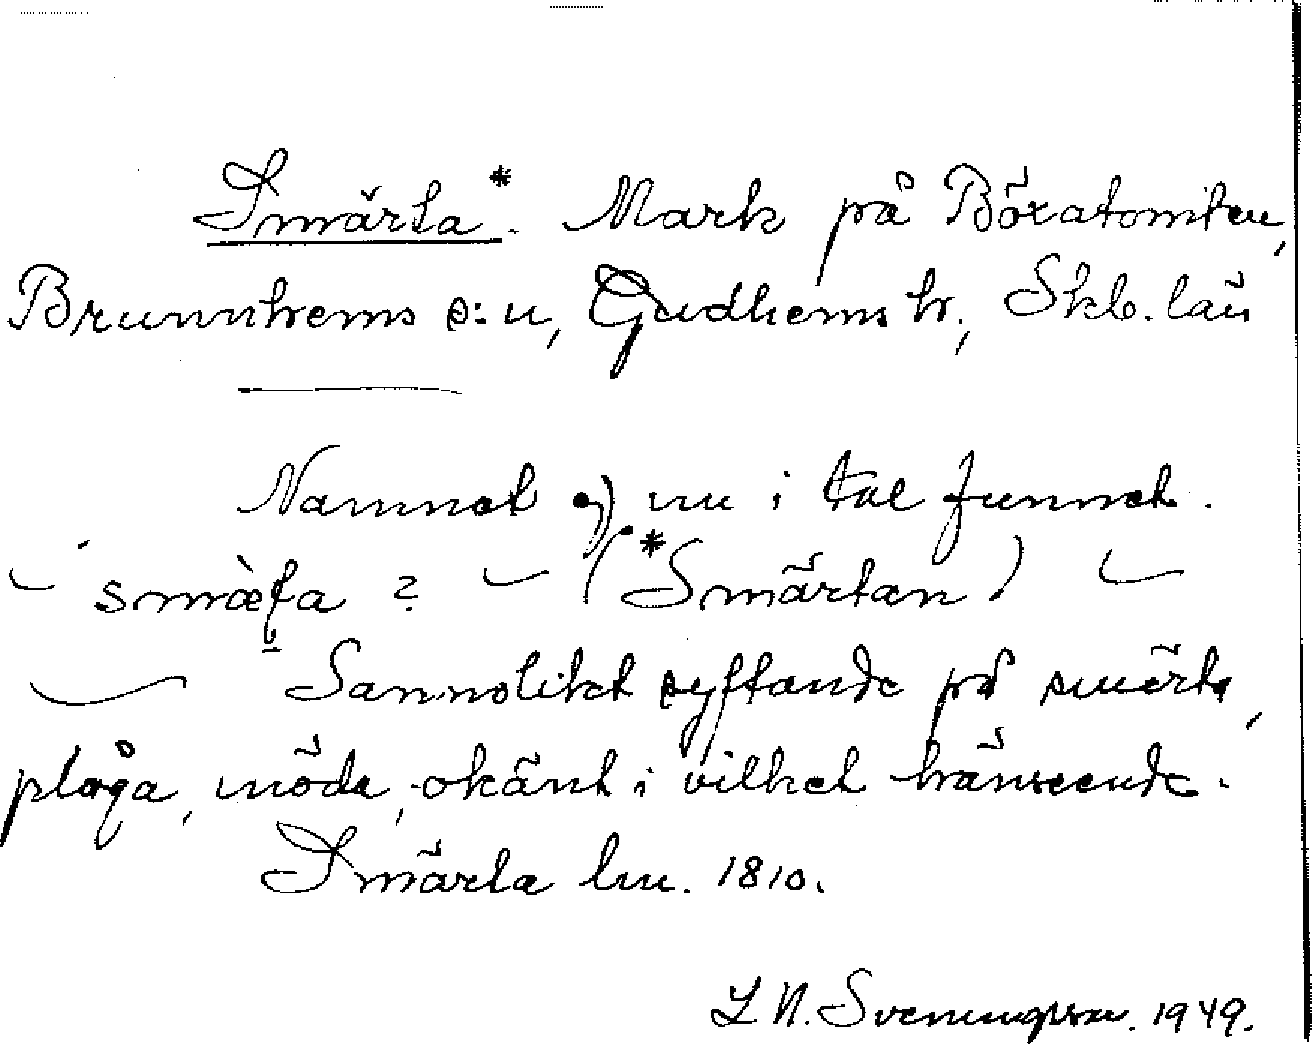 Smärta*. Mark på Böratomten,
Brunnhems s:n, Gudhems hr, Skb. län
Namnet ej nu i tal funnet.
smæ̀ʈa ? (*Smärtan)
Sannolikt syftande på smärta,
plåga, möda, okänt i vilket hänseende.
Smärta lm. 1810.
L. N. Svenungsson. 1949.